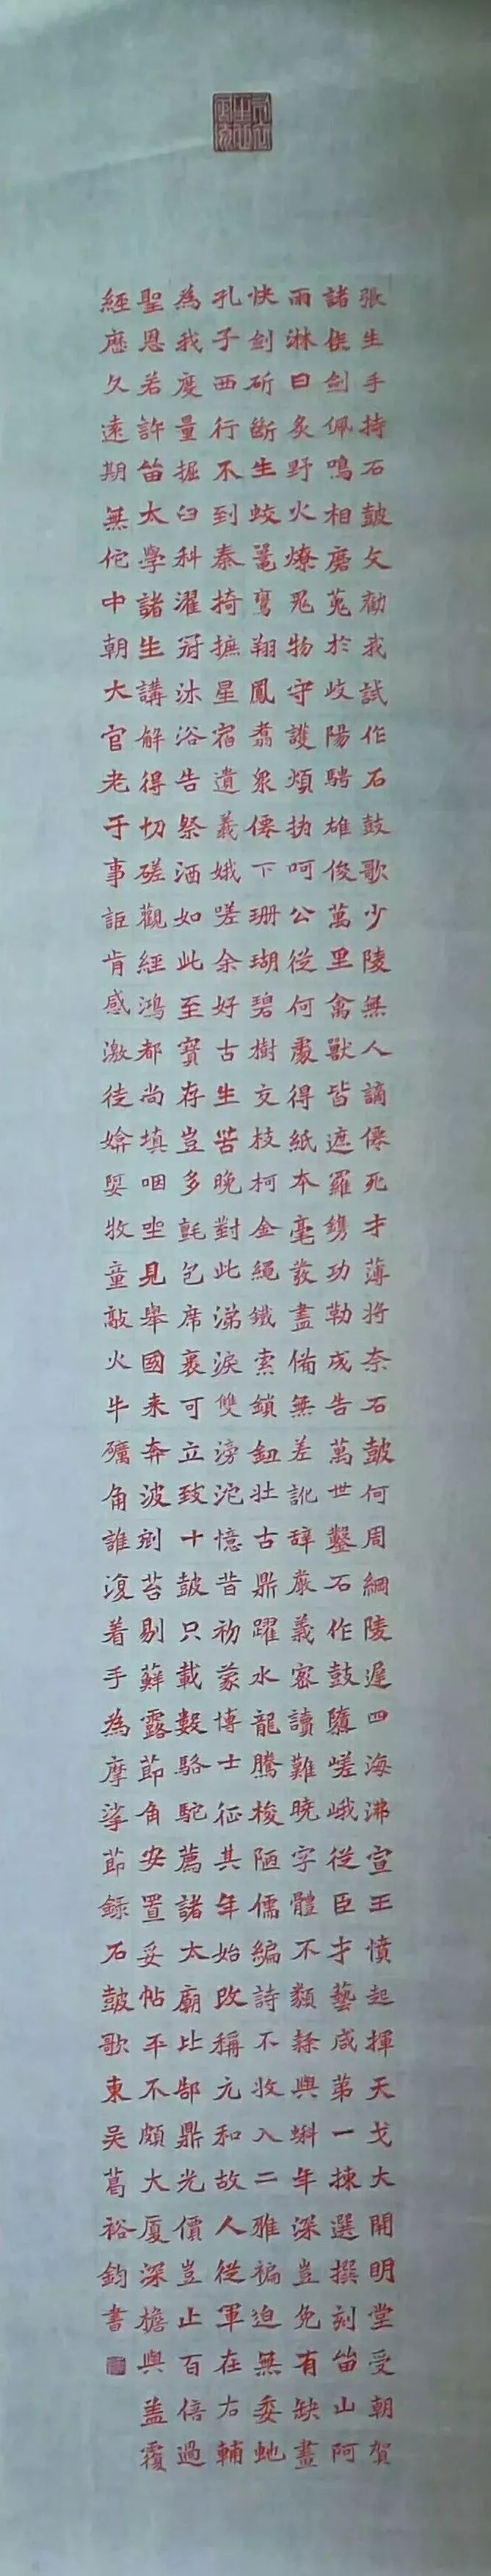 張生手持石皷文勸我試作石鼓歌少陵無人謫僊死才薄將奈石皷何周綱陵遲四海沸宣王憤起揮天戈大開明堂受朝賀
諸侯劍佩鳴相磨蒐於岐陽騁雄俊萬里禽獸皆遮羅鐫功勒成告萬世鑿石作鼓隳嵯峨從臣才藝咸第一揀選撰刻留山阿
雨淋日炙野火燎鬼物守護煩撝呵公從何處得紙本毫髮盡備無差訛辭嚴義密讀難曉字體不類隸與蝌年深豈免有缺畫
快劍斫斷生蛟鼉鸞翔鳳翥衆僊下珊瑚碧樹交枝柯金繩鐵索鎖鈕壯古鼎躍水龍騰梭陋儒編詩不收入二雅褊迫無委虵
孔子西行不到秦掎摭星宿遺羲娥嗟余好古生苦晚對此涕淚雙滂沱憶昔初蒙博士征其年始改稱元和故人從軍在右輔
為我度量掘臼科濯冠沐浴告祭酒如此至寶存豈多氈包席裹可立致十皷只載數駱駝薦諸太廟比郜鼎光價豈止百倍過
聖恩若許留太學諸生講解得切磋觀經鴻都尚填咽坐見舉國来奔波剜苔剔蘚露節角安置妥帖平不頗大廈深檐與蓋覆
經歷久遠期無佗中朝大官老于事詎肯感激徒媕娿牧童敲火牛礪角誰復着手為摩挲節録石皷歌東吴葛裕鈞書